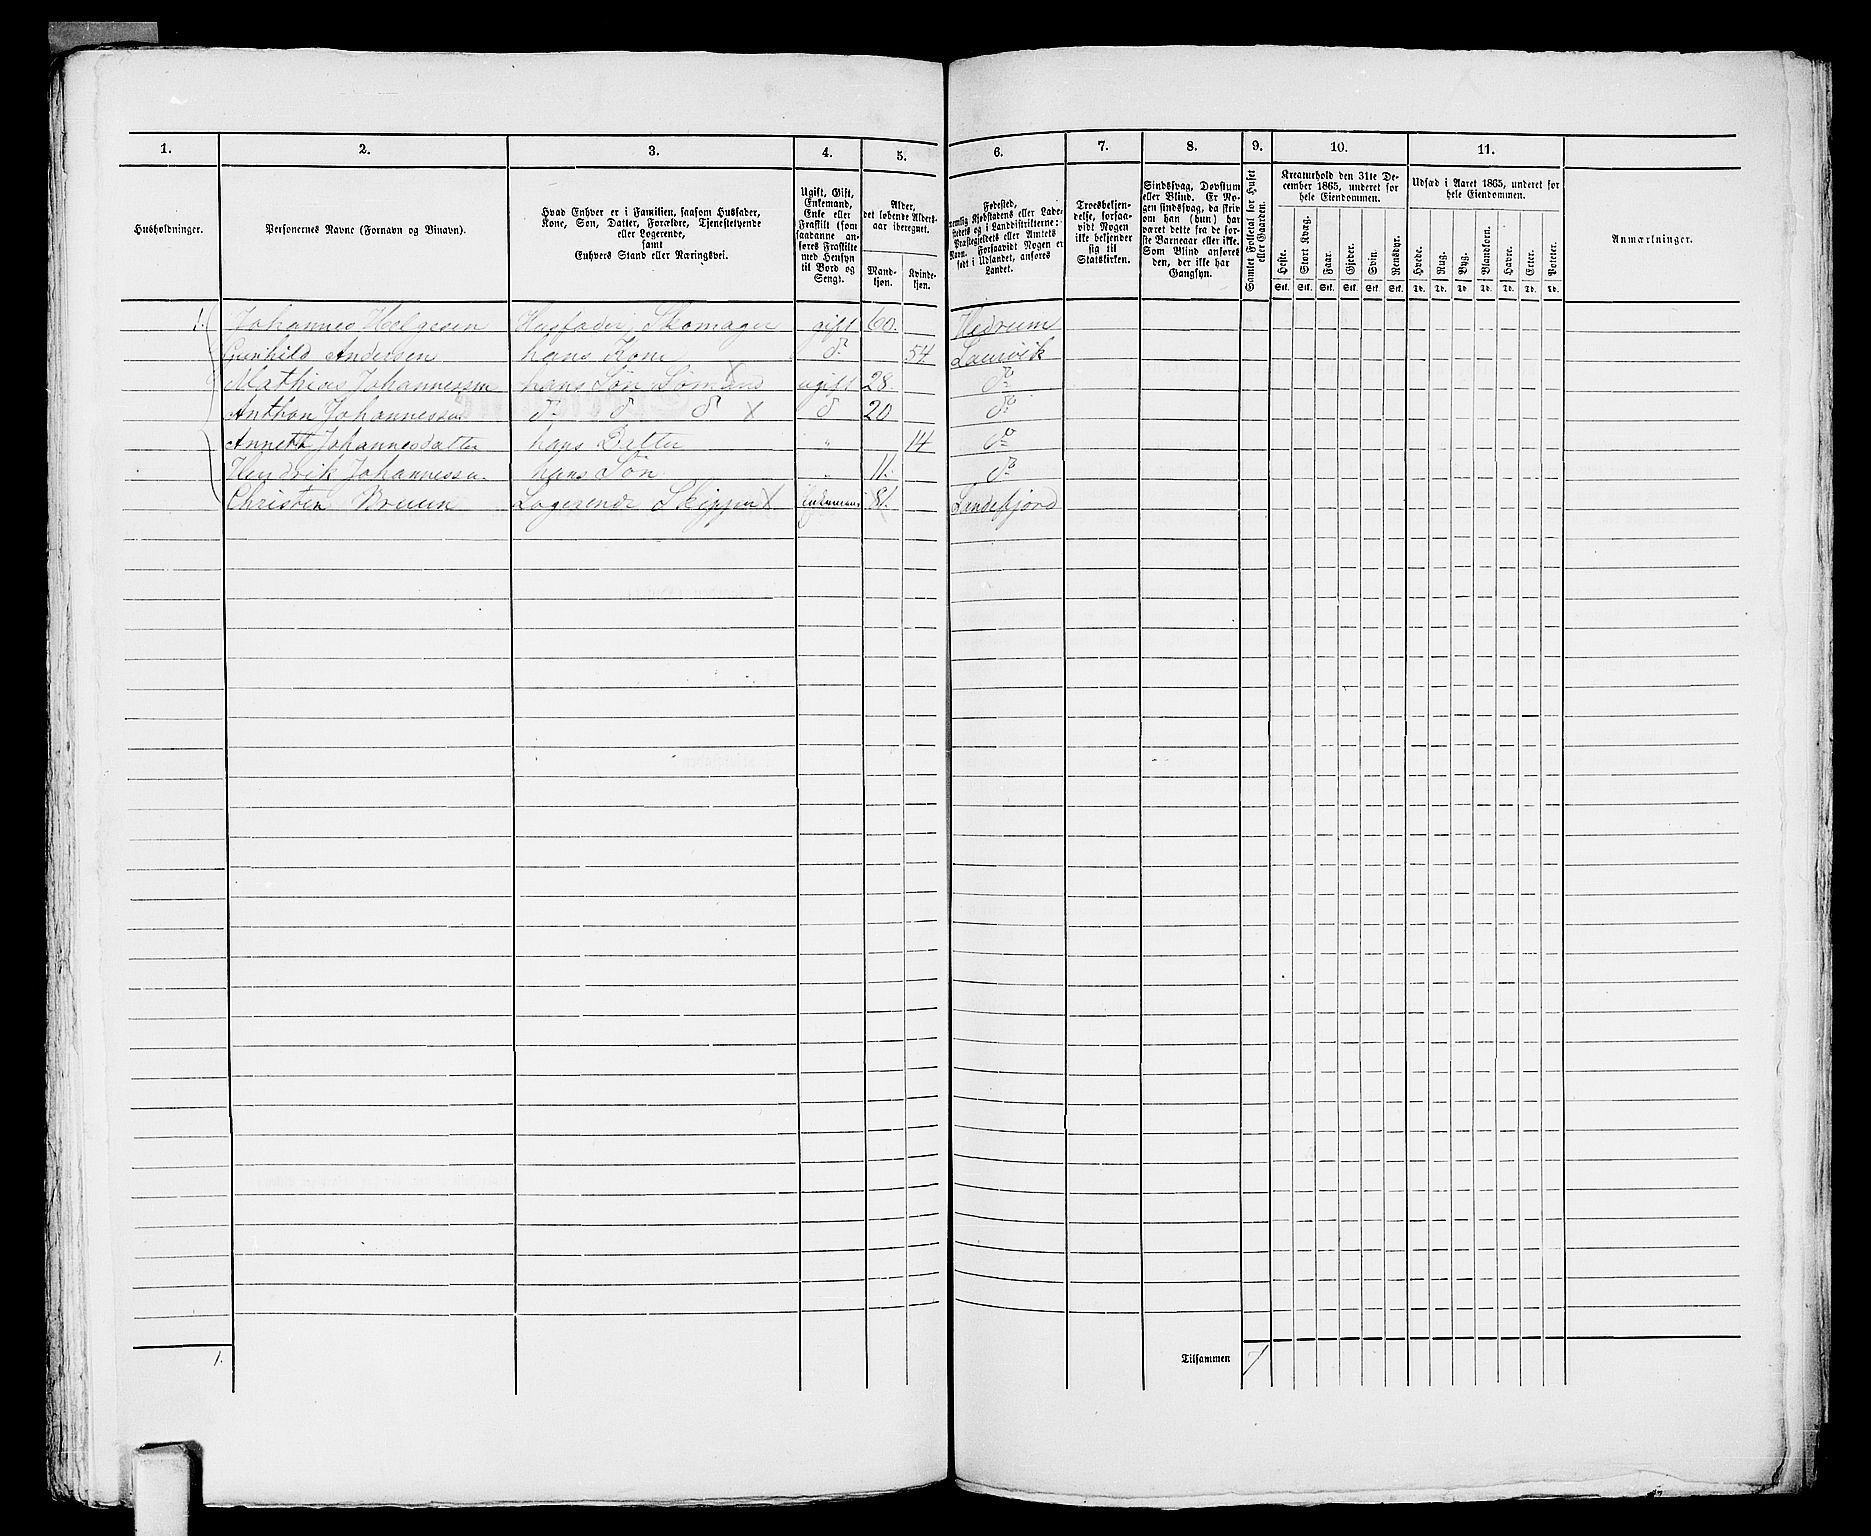 1. 2. 3. 4. 5. 6. 7. 8. 9. 10. 11.
Husholdninger.
Personernes Navne (Fornavn og Binavn).
Hvad Enhver er i Familien, saasom Husfader,
Kone, Søn, Datter, Forældre, Tjenestetyende
eller Logerende,
samt
Enhvers Stand eller Næringsvei.
Ugift, Gift,
Enkemand,
Enke eller
Fraskilt (som
saadanne an-
føres Fraskilte
med Hensyn
til Bord og
Seng).
Alder,
det løbende Alders-
aar iberegnet.
Mand-
kjøn.
Kvinde-
kjøn.
Fødested,
nemlig Kjøbstadens eller Lade-
stedets og i Landdistrikterne:
Præstegjeldets eller Amtets
Navn. Forsaavidt Nogen er
født i Udlandet, anføres
Landet.
Troesbekjen-
delse, forsaa-
vidt Nogen
ikke bekjender
sig til
Statskirken.
Sindssvag, Døvstum
eller Blind. Er No-
gen sindssvag, da skriv
om han (hun) har
været dette fra de før-
ste Barneaar eller ikke.
Som Blind anføres
den, der ikke har
Gangsyn.
Samlet Folketal for Huset
eller Gaarden.
Kreaturhold den 31te De-
cember 1865, underet for
hele Eiendommen.
Heste. Stort Kvæg. Faar. Gjeder. Svin. Rensdyr.
Stk. Stk. Stk. Stk. Stk. Stk.
Udsæd i Aaret 1865, underet for
hele Eiendommen.
Hvede. Rug. Byg. Blandkorn. Havre. Erter. Poteter.
Td. Td. Td. Td. Td. Td. Td.
Anmærkninger.
1. Johannes Helgesen Husfader, Skomager gift 60. Hedrum
Gunhild Andersen hans Kone do 54 Laurvik
Mathias Johannessen hans Søn Sømand ugift 28. do
Anthon Johannessen do do do x do 20 do
Annette Johannesdatter hans Datter " 14 do
Hendrik Johannessen hans Søn " 11. do
Christen Bruun Logerende Skipper x Enkemand 81. Sandefjord
1. Tilsammen 7